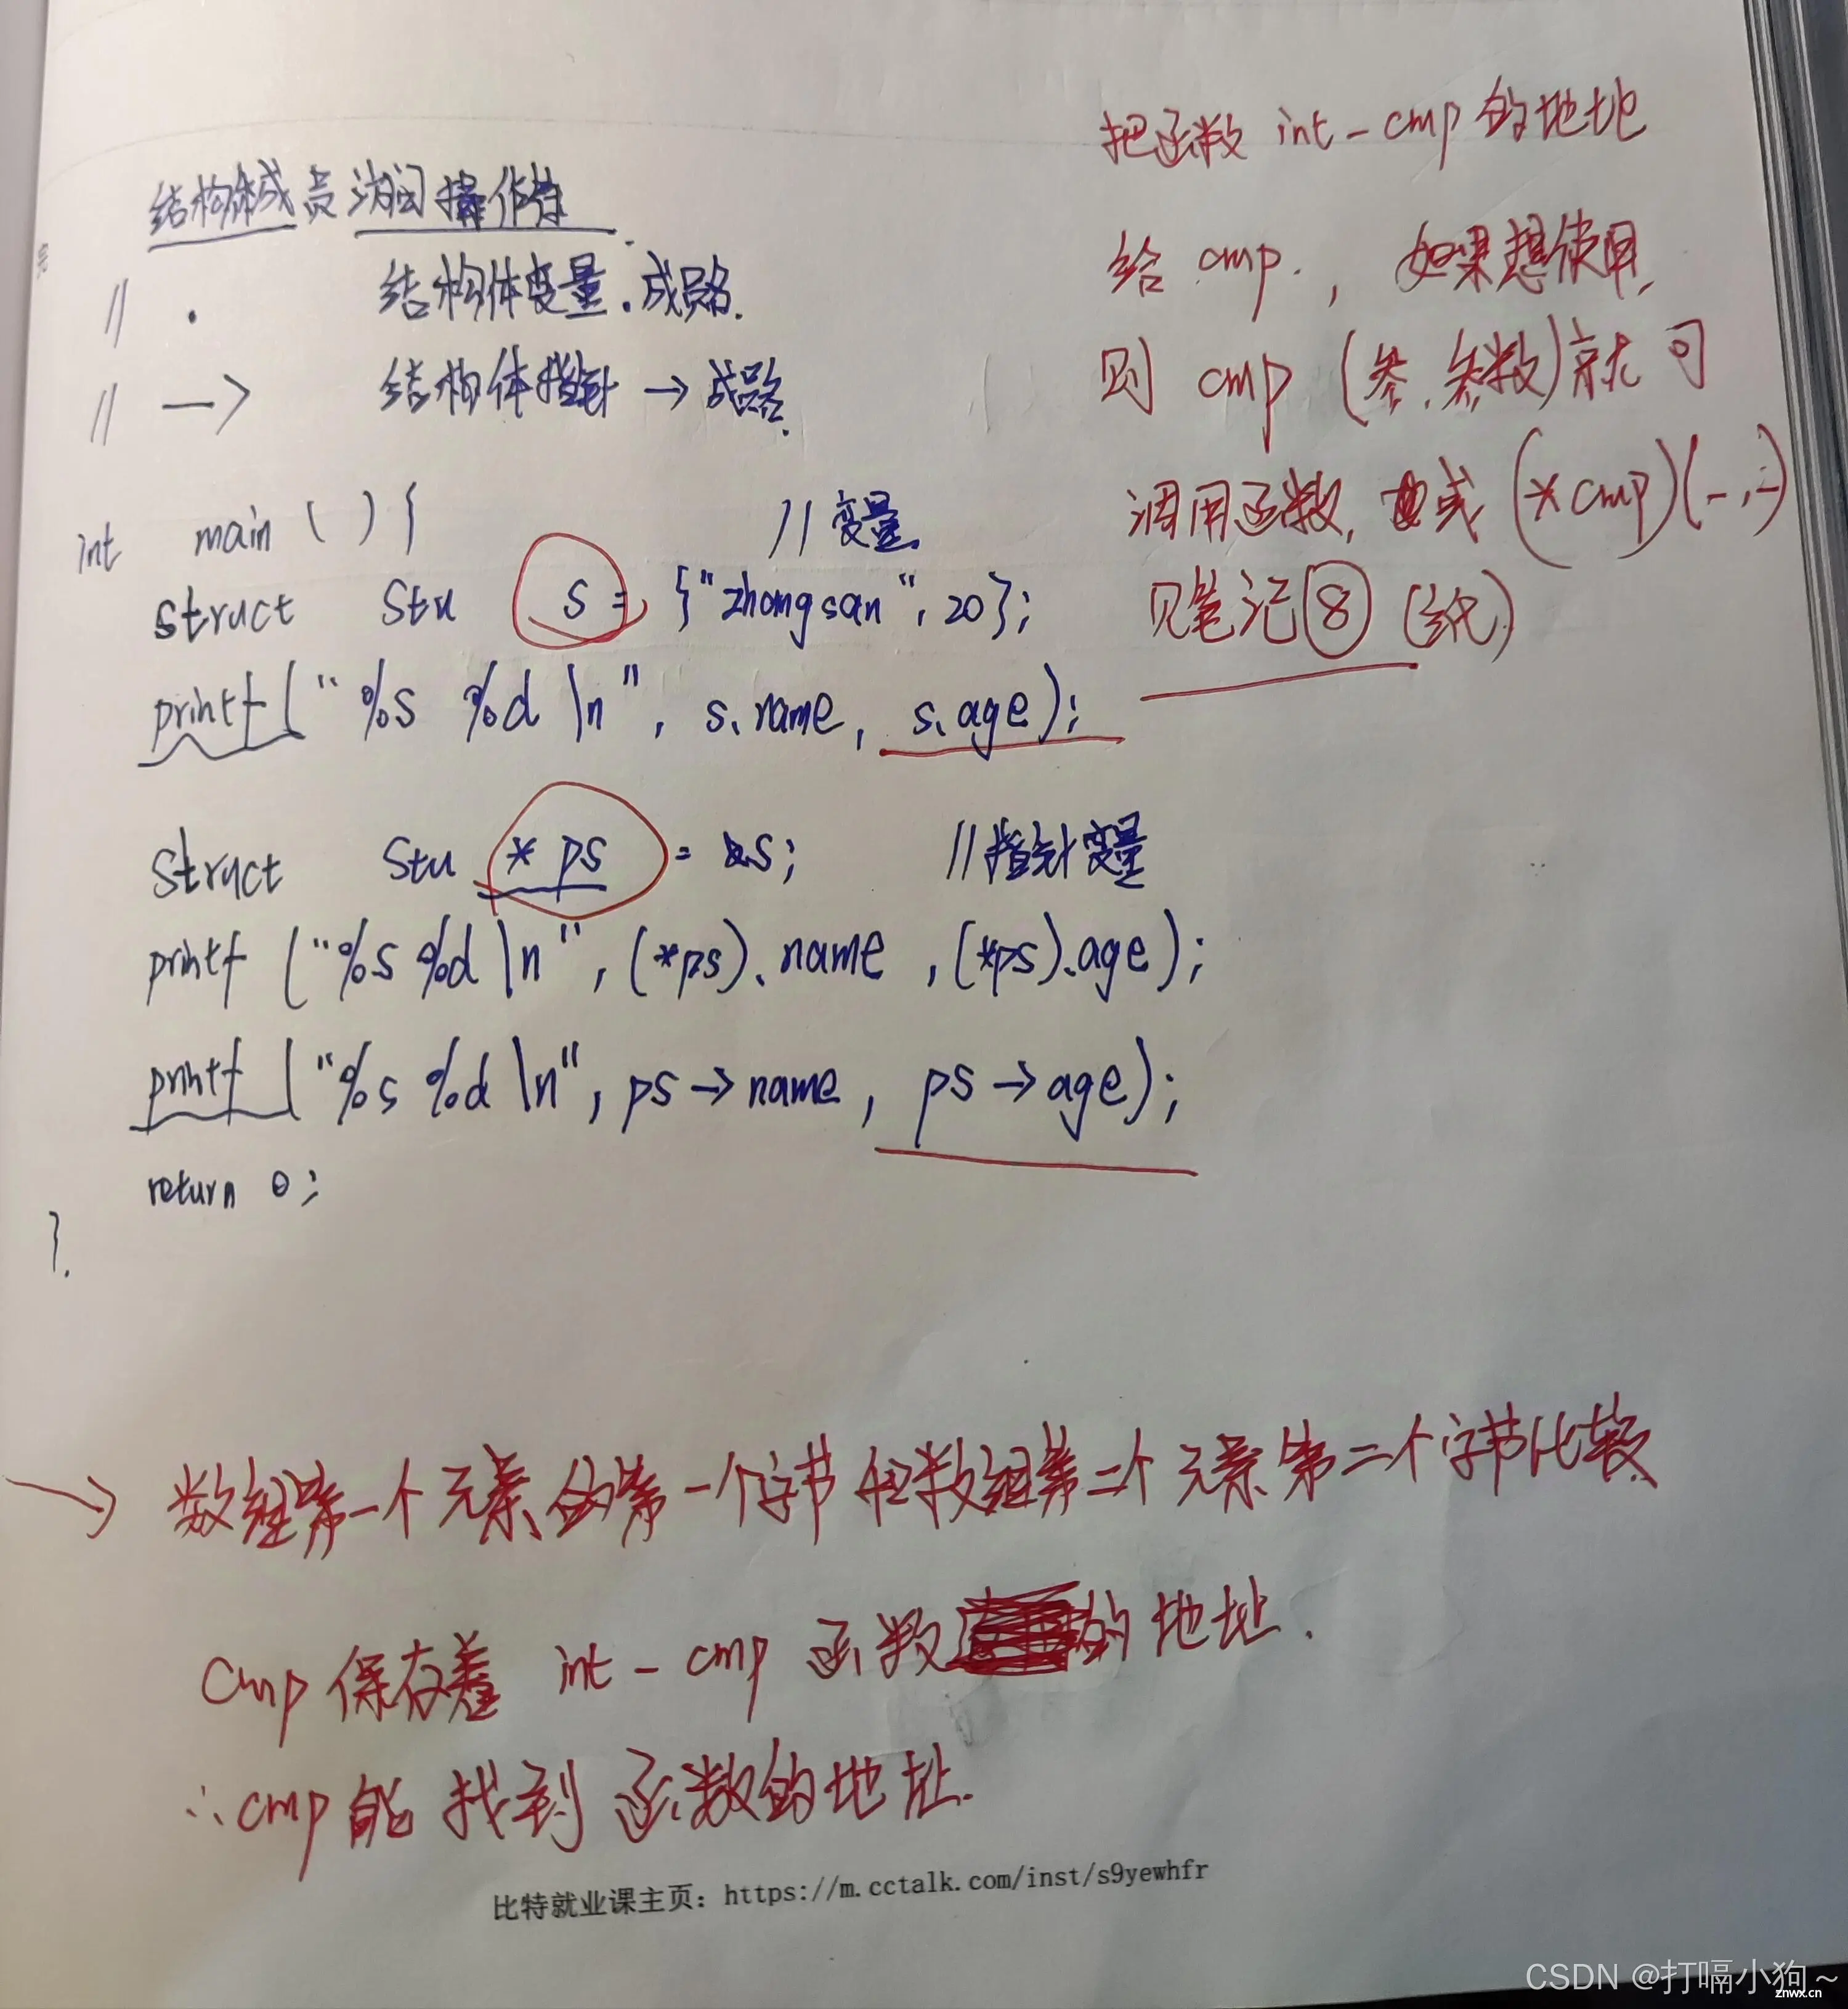 结构体成员访问操作符
// . 结构体变量.成员名.
// —> 结构体指针 → 成员名.
int main ( ) {
//变量
struct Stu s = {"zhangsan", 20};
printf ("%s %d \n", s.name, s.age);
struct Stu * ps = &s; //指针变量
printf ("%s %d \n", (*ps).name, (*ps).age);
printf ("%s %d \n", ps→name, ps→age);
return 0;
}.
把函数 int_cmp 的地址
给 cmp. , 如果想使用,
则 cmp (参, 参数) 就可
调用函数, 或 (*cmp)(-,-)
见笔记⑧ (纸)
→ 数组第一个元素的第一个字节和数组第二个元素第二个字节比较
Cmp 保存着 int_cmp 函数的地址.
∴cmp 能找到函数的地址.
比特就业课主页: https://m.cctalk.com/inst/s9yewhfr
CSDN @打嗝小狗~
znwx.cn